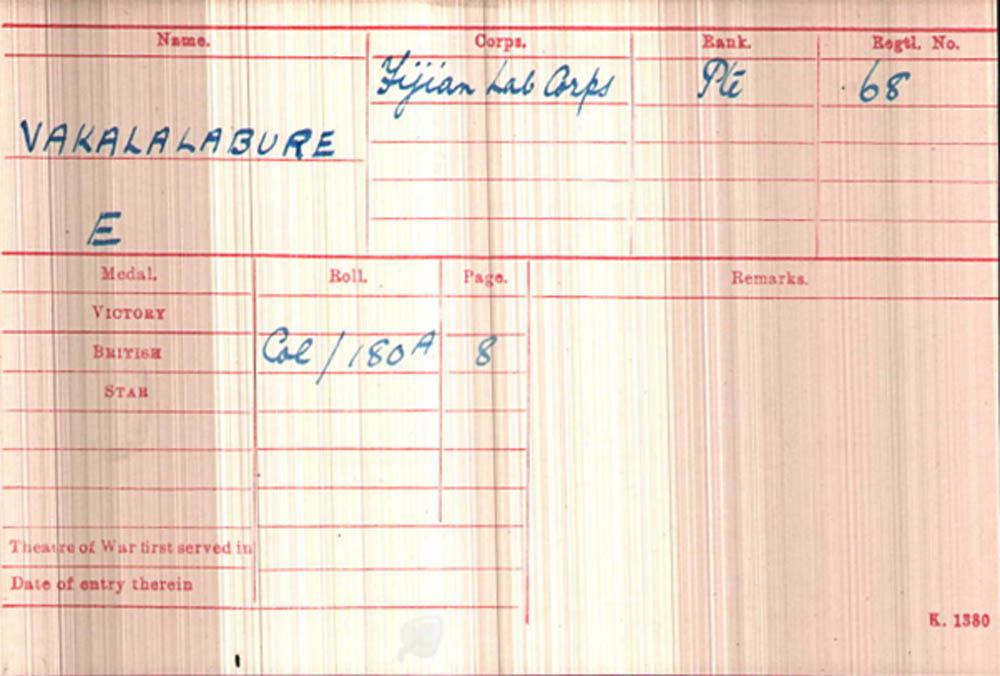 Name. Corps. Rank. Regtl. No.
Fijian Lab Corps Pte 68
VAKALALABURE
E
Medal. Roll. Page. Remarks.
VICTORY
BRITISH Col/180A 8
STAR
Theatre of War first served in
Date of entry therein
K. 1380